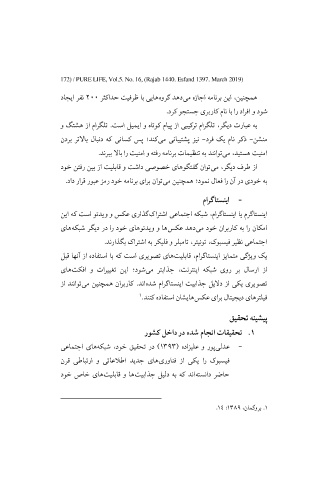 172) / PURE LIFE, Vol.5. No. 16, (Rajab 1440. Esfand 1397. March 2019)
همچنین، این برنامه اجازه می‌دهد گروه‌هایی با ظرفیت حداکثر ۲۰۰ نفر ایجاد
شود و افراد را با نام کاربری جستجو کرد.
به عبارت دیگر، تلگرام ترکیبی از پیام کوتاه و ایمیل است. تلگرام از هشتگ و
منشن- ذکر نام یک فرد- نیز پشتیبانی می‌کند؛ پس کسانی که دنبال بالاتر بردن
امنیت هستید، می‌توانند به تنظیمات برنامه رفته و امنیت را بالا ببرند.
از طرف دیگر، می‌توان گفتگوهای خصوصی داشت و قابلیت از بین رفتن خود
به خودی در آن را فعال نمود؛ همچنین می‌توان برای برنامه خود رمز عبور قرار داد.
- اینستاگرام
اینستاگرم یا اینستاگرام، شبکه اجتماعی اشتراک‌گذاری عکس و ویدئو است که این
امکان را به کاربران خود می‌دهد عکس‌ها و ویدئوهای خود را در دیگر شبکه‌های
اجتماعی نظیر فیسبوک، توئیتر، تامبلر و فلیکر به اشتراک بگذارند.
یک ویژگی متمایز اینستاگرام، قابلیت‌های تصویری است که با استفاده از آنها قبل
از ارسال بر روی شبکه اینترنت، جذابتر می‌شود؛ این تغییرات و افکت‌های
تصویری یکی از دلایل جذابیت اینستاگرام شده‌اند. کاربران همچنین می‌توانند از
فیلترهای دیجیتال برای عکس‌هایشان استفاده کنند.۱
پیشینه تحقیق
۱. تحقیقات انجام شده در داخل کشور
- عدلی‌پور و علیزاده (۱۳۹۳) در تحقیق خود، شبکه‌های اجتماعی
فیسبوک را یکی از فناوری‌های جدید اطلاعاتی و ارتباطی قرن
حاضر دانسته‌اند که به دلیل جذابیت‌ها و قابلیت‌های خاص خود
۱. بروکمان، ۱۳۸۹: ۱۴.